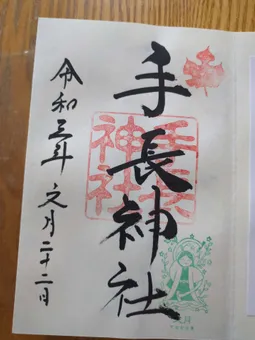 手長神社
手長
神社
令和三年 文月二十二日